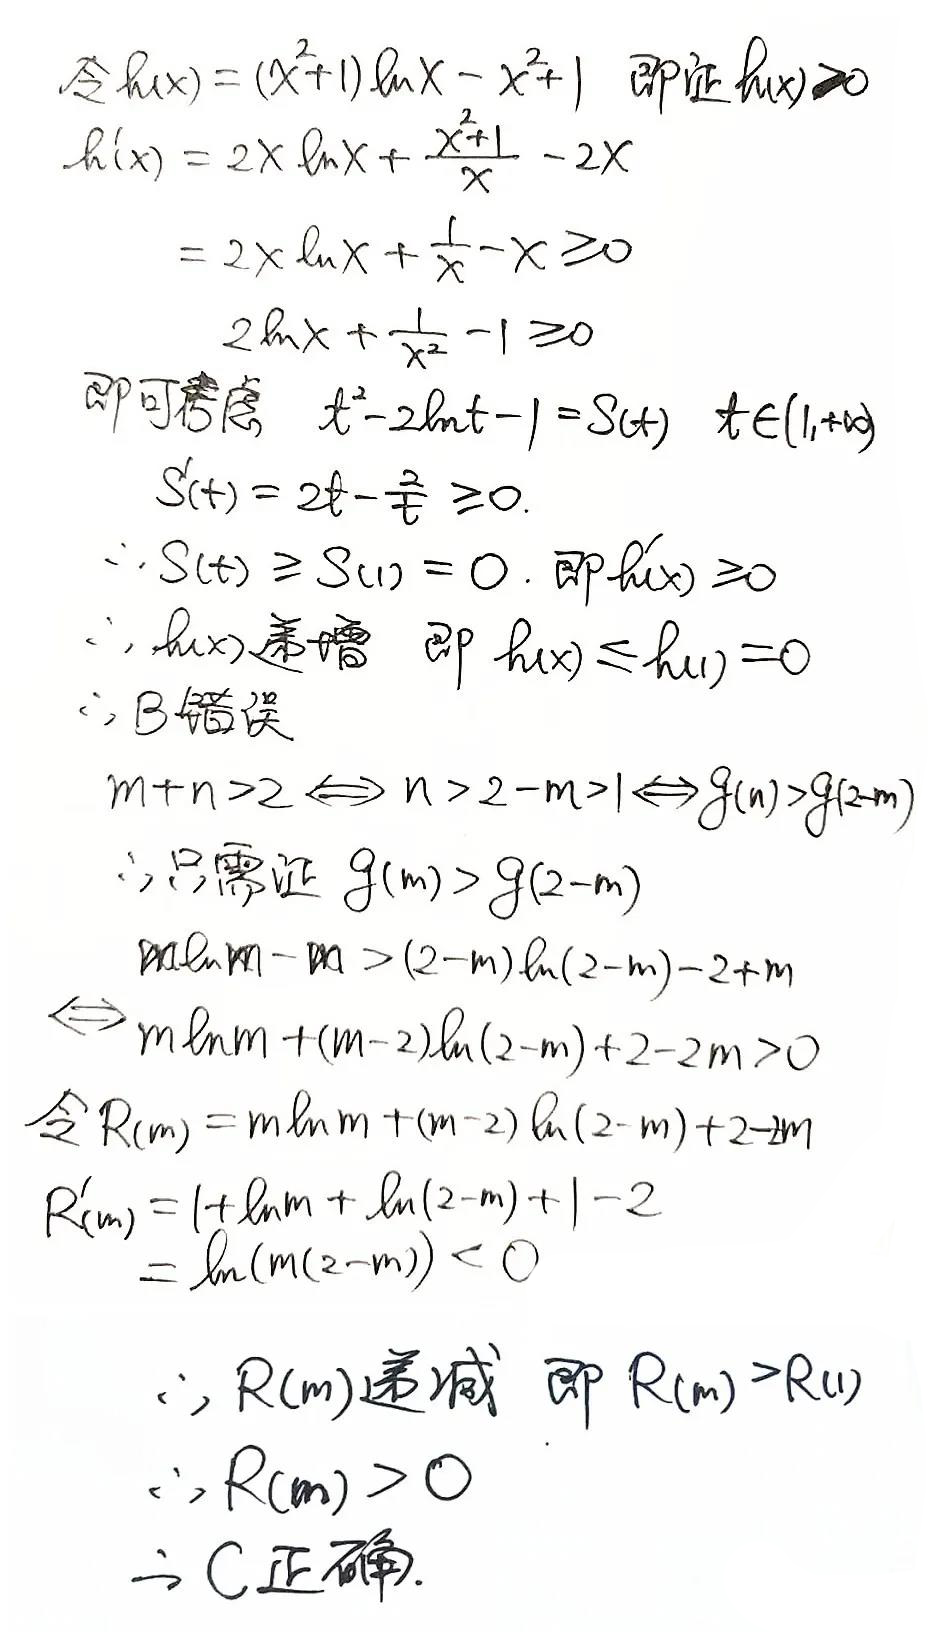 令h(x)=(x²+1)lnx-x²+1 即证h(x)>0
h'(x)=2xlnx+\frac{x²+1}{x}-2x
=2xlnx+\frac{1}{x}-x≥0
2lnx+\frac{1}{x²}-1≥0
即可考虑 t²-2lnt-1=S(t) t∈(1,+∞)
S'(t)=2t-\frac{2}{t}≥0.
∴S(t)≥S(1)=0.即h'(x)≥0
∴h(x)递增 即h(x)≤h(1)=0
∴B错误
m+n>2⇔n>2-m>1⇔g(n)>g(2-m)
∴只需证 g(m)>g(2-m)
mlnm-m>(2-m)ln(2-m)-2+m
⇔mlnm+(m-2)ln(2-m)+2-2m>0
令R(m)=mlnm+(m-2)ln(2-m)+2-2m
R'(m)=1+lnm+ln(2-m)+1-2
=ln(m(2-m))<0
∴R(m)递减 即R(m)>R(1)
∴R(m)>0
∴C正确.